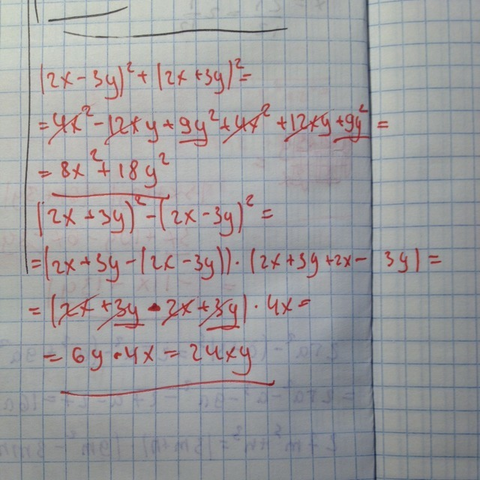 (2x-3y)²+(2x+3y)²=
=4x²-12xy+9y²+4x²+12xy+9y²=
=8x²+18y²
(2x+3y)²-(2x-3y)²=
=(2x+3y-(2x-3y))·(2x+3y+2x-3y)=
=(2x+3y-2x+3y)·4x=
=6y·4x=24xy